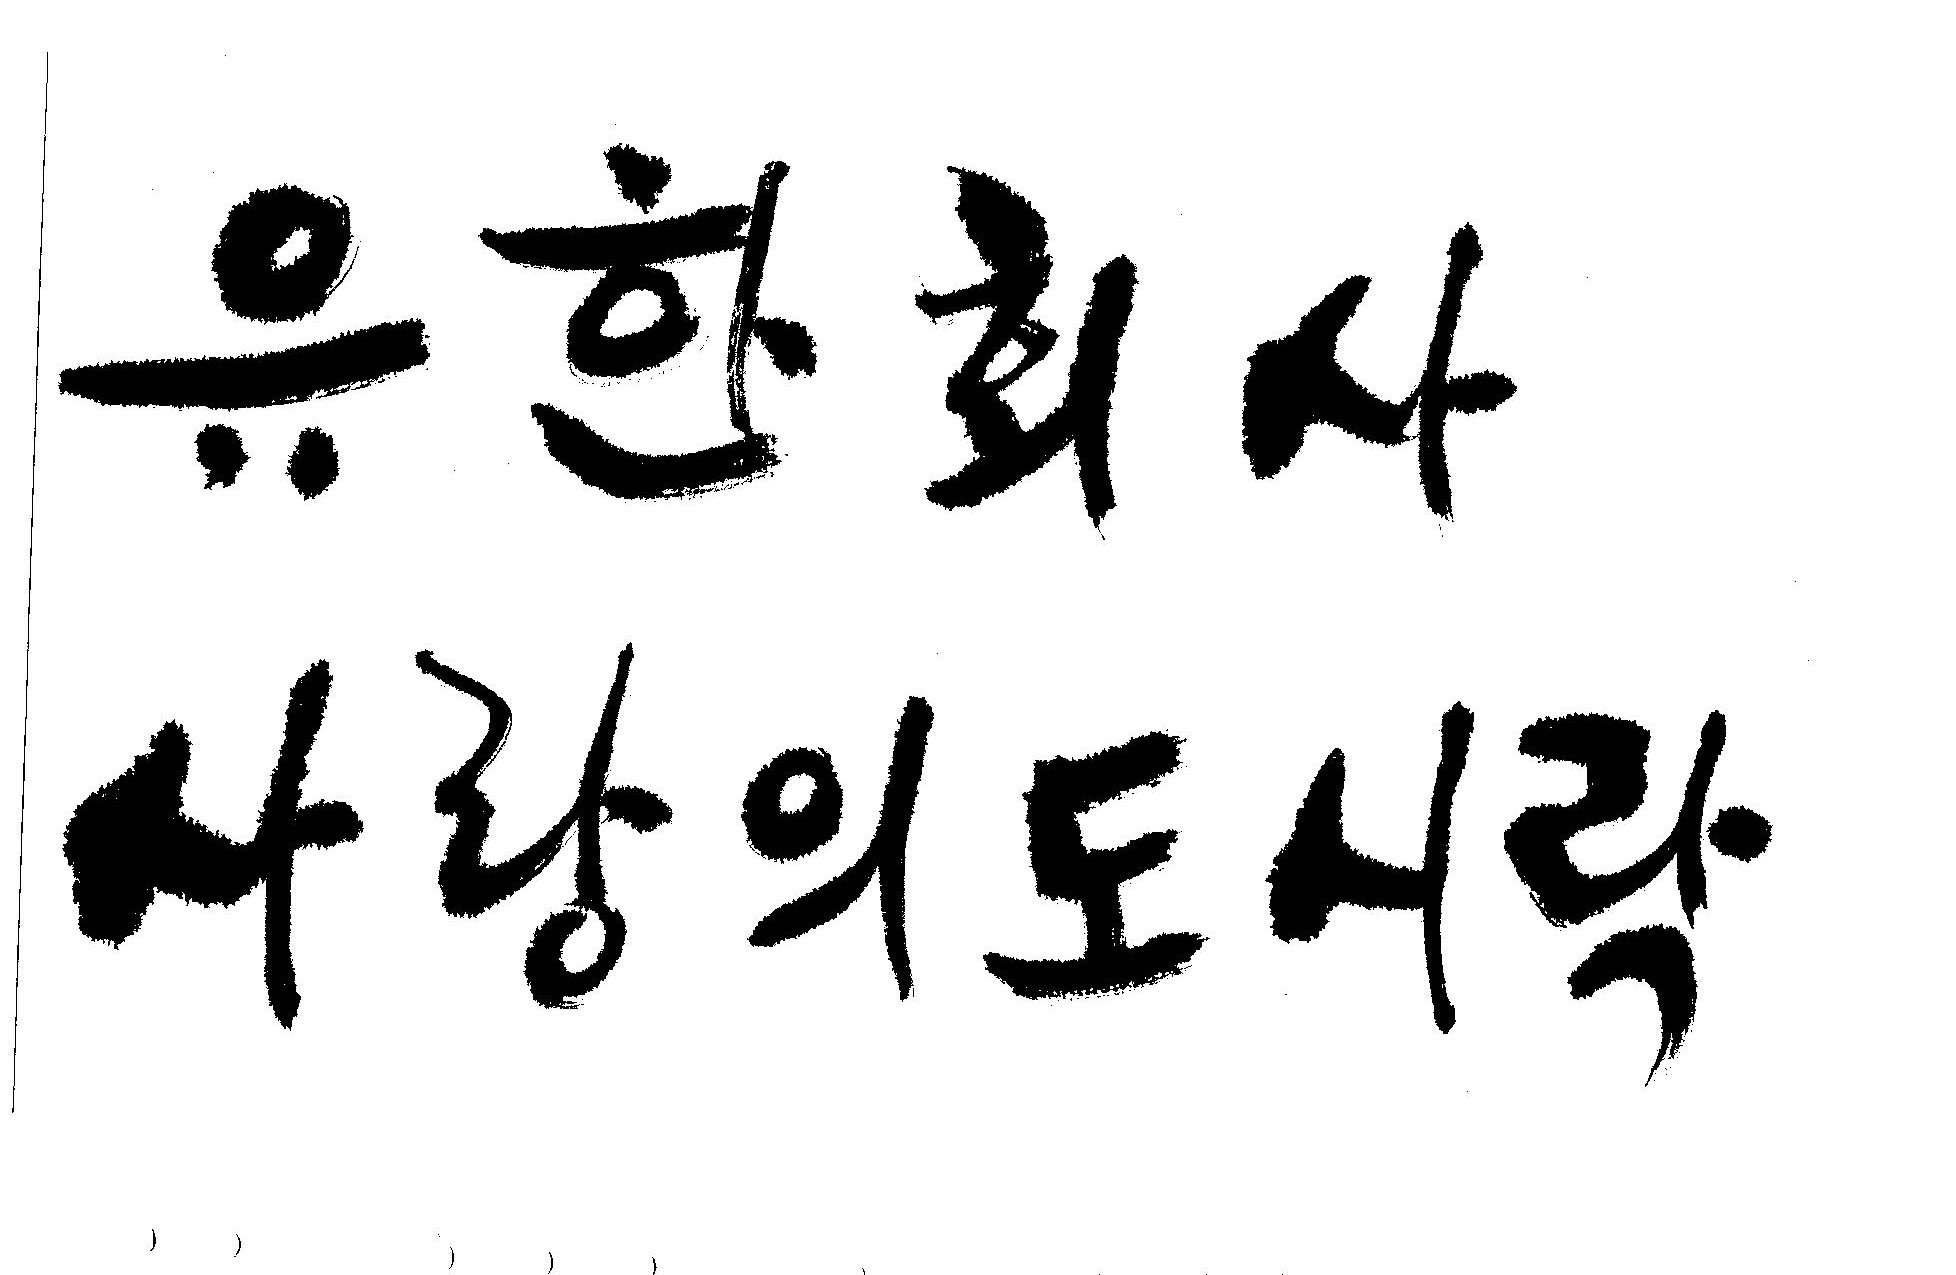 유한회사
사랑의도시락